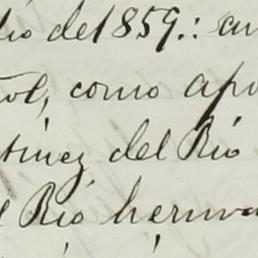 lio de 1859.: an
tol, como apo
tinez del Rio
l Rio herma